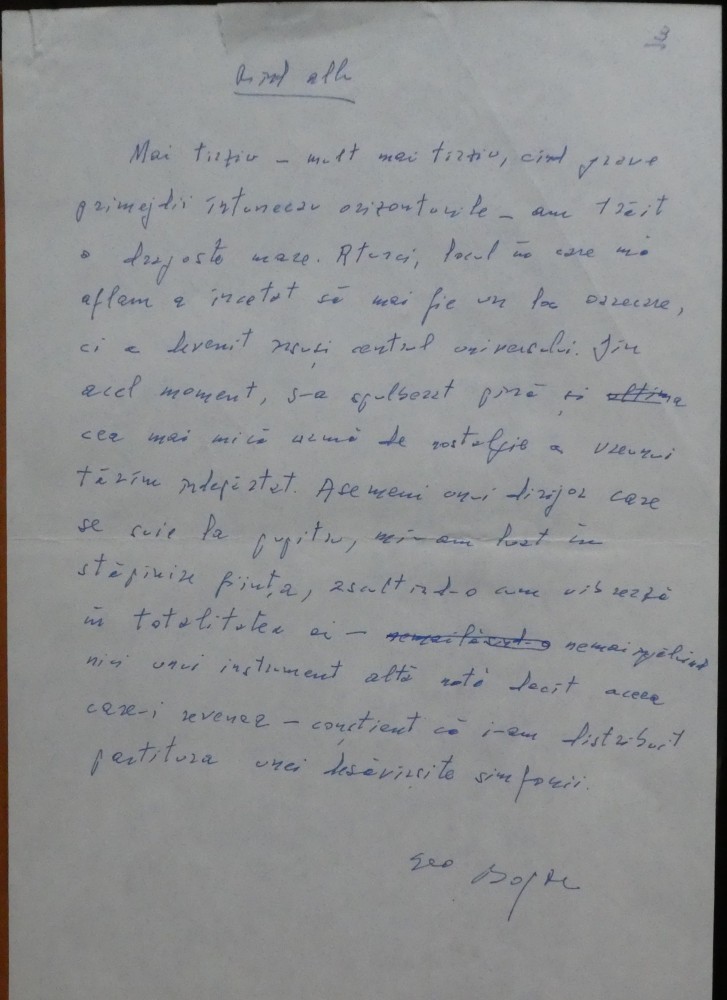 3
alb
Mai tîrziu – mult mai tîrziu, cînd grave
primejdii întunecau orizonturile – am trăit
o dragoste mare. Atunci, locul în care mă
aflam a încetat să mai fie un loc oarecare,
ci a devenit însuși centrul universului. Din
acel moment, s-a spulberat pînă și ultima
cea mai mică urmă de nostalgie a vreunui
tărîm îndepărtat. Asemeni unui dirijor care
se suie la pupitru, mi-am luat în
stăpînire ființa, ascultînd-o cum vibrează
în totalitatea ei – nemailăsînd-o nemai
nici unui instrument altă notă decît aceea
care-i revenea – conștient că i-am distribuit
partitura unei desăvîrșite simfonii.
Geo Bogza